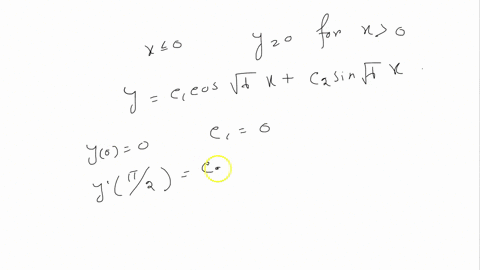 x ≤ 0 y=0 for x > 0
y = c₁cos √λ x + c₂ sin √λ x
y(0) = 0 c₁ = 0
y'(π/2) = c